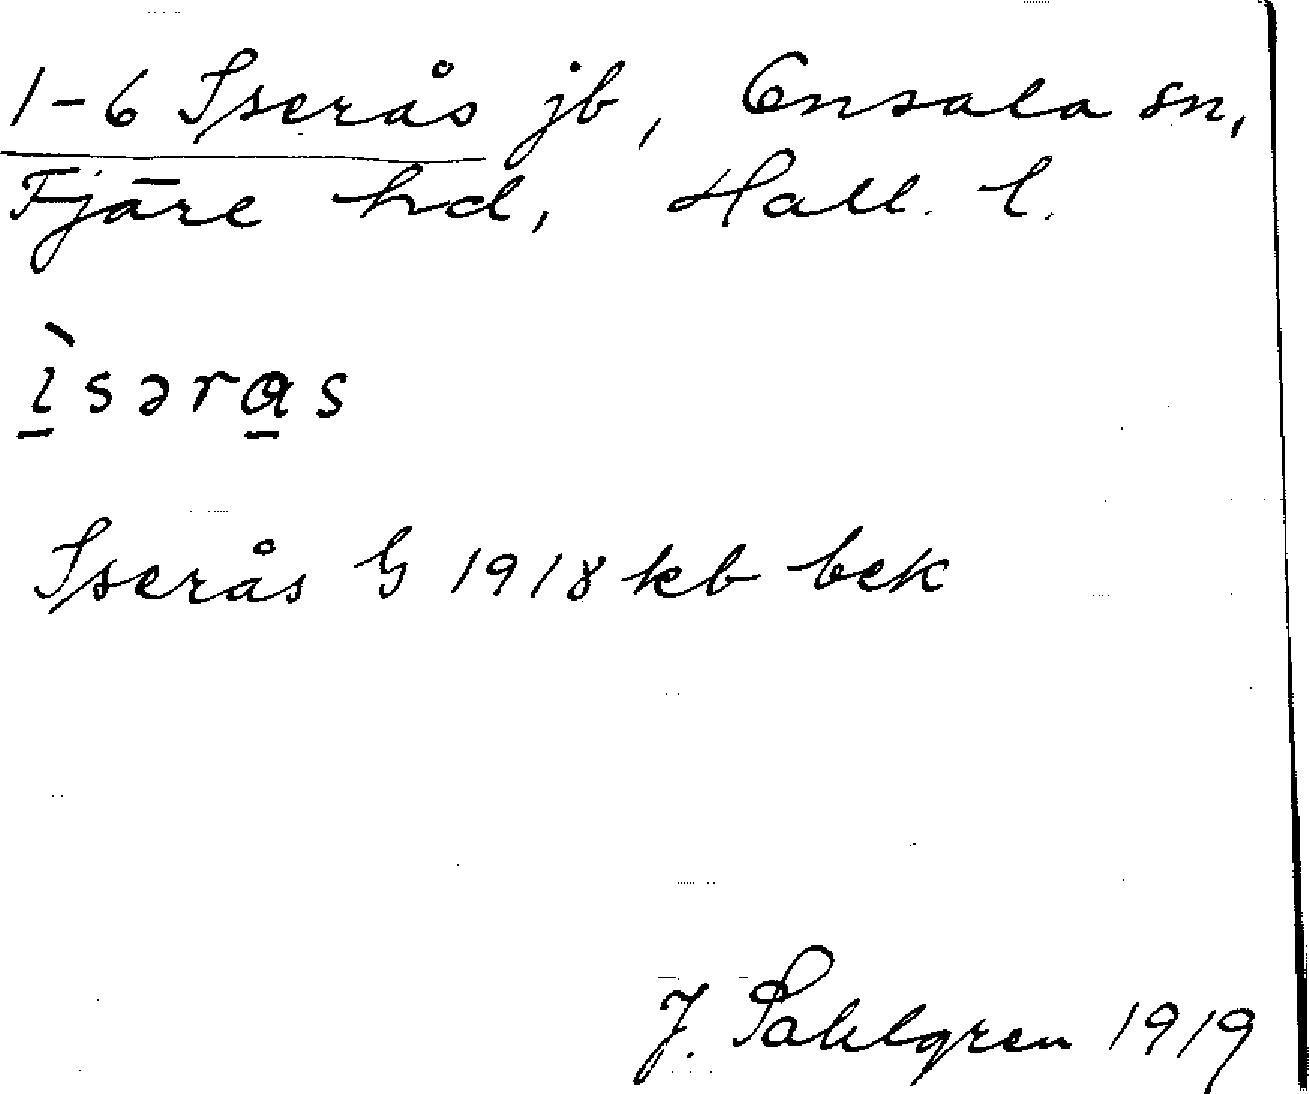 1-6 Iserås jb, Onsala sn,
Fjäre hd, Hall. l.
ì̱səra̱s
Iserås G 1918 kb bek
J. Sahlgren 1919